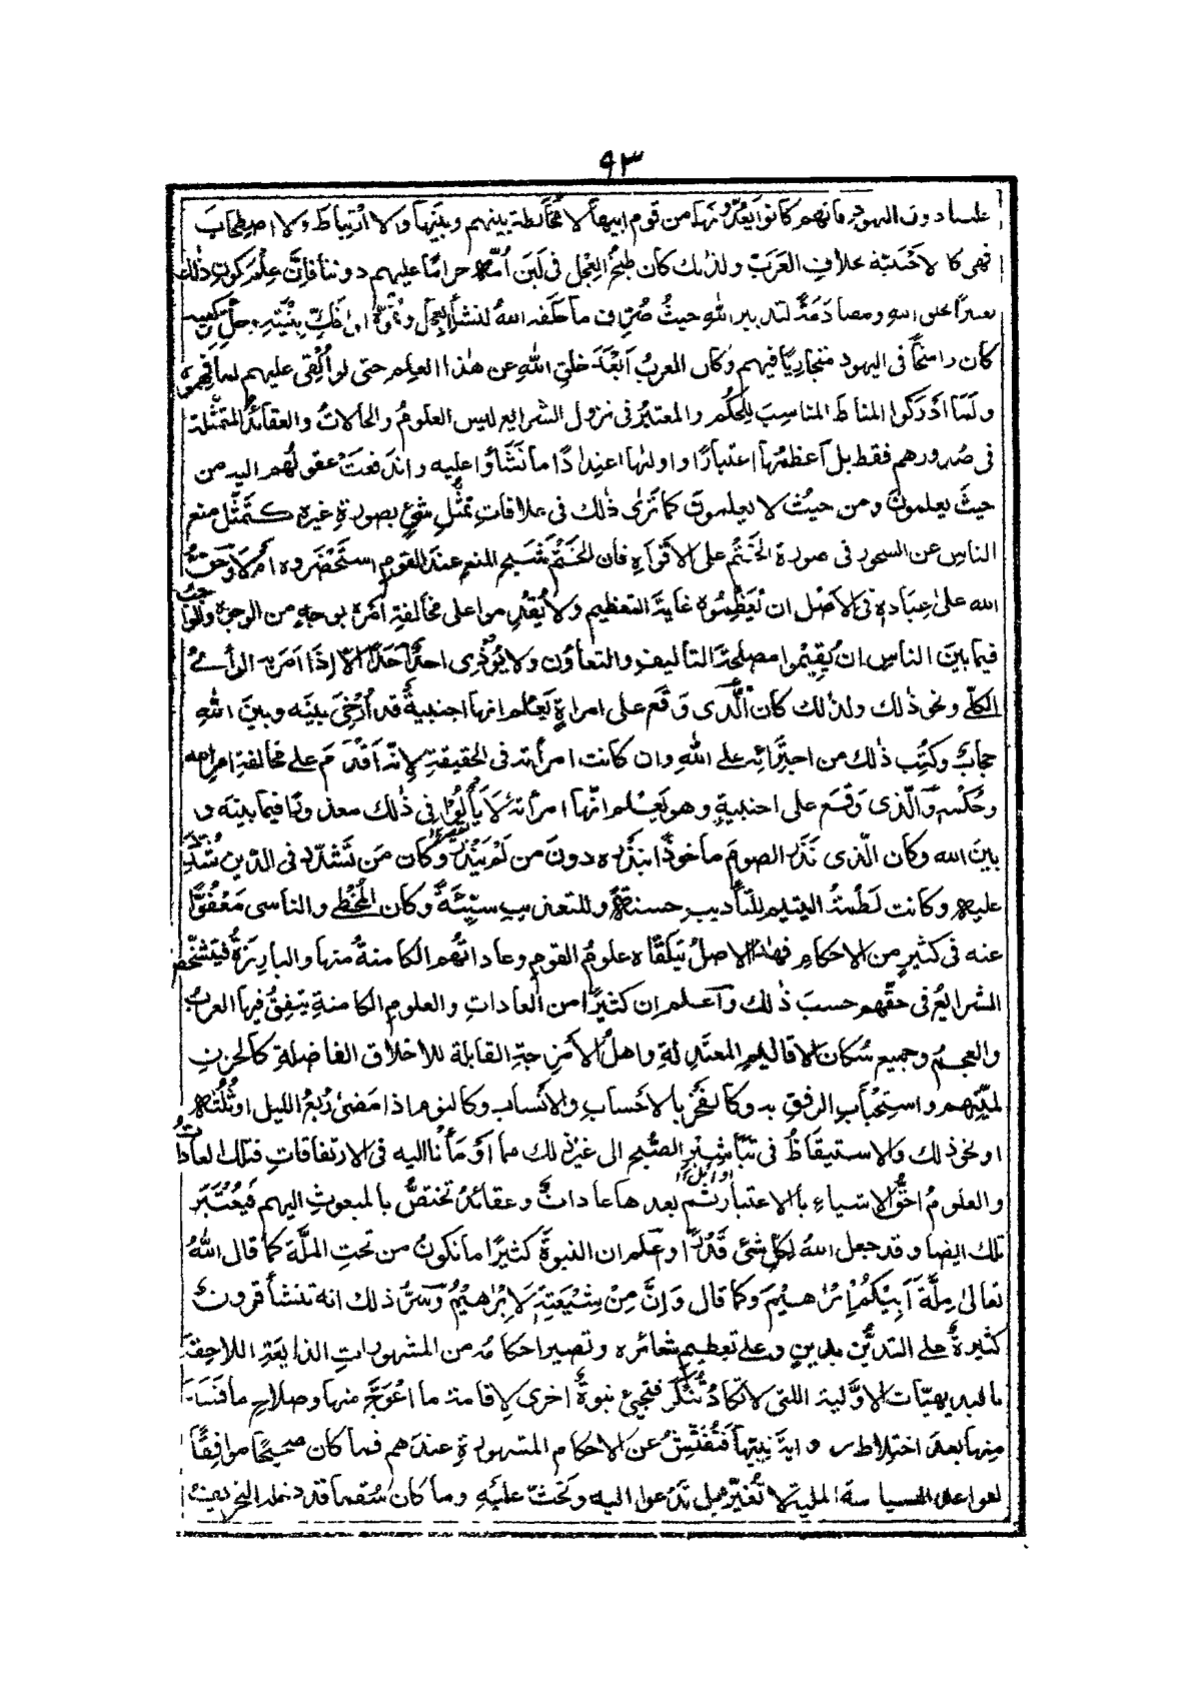 ٩٣
علينا دون اليهود فانهم كانوا يَعُدُّونَها من قوم ابيها لا مُخالَطةَ بينهم وبينَها ولا ارْتِباطَ ولا اصطِحابَ
فهى كالاجنبية بخلافِ العَرَبِ ولذلك كان طبخُ العِجْلِ فى لَبَنِ اُمِّه حرامًا عليهم دوننا فاِنَّ عِلْمَ كونِ ذٰلك
تغييرًا لخلق اللهِ ومصادَمَةً لتدبيرِ اللهِ حيثُ صُرِف ما خلقه اللهُ لنشأ العِجْل ونُمُوِّه الى فَكِّ بِنْيَتِه وحَلِّ تركيبِه
كان راسخًا فى اليهود متجاريًا فيهم وكان العربُ اَبْعَدَ خلقِ اللهِ عن هٰذا العلمِ حتى لو اُلْقِىَ عليهم لما فهموه
ولَمَا ادْرَكوا المَناطَ المناسِبَ لِلحُكْمِ والمعتبَرُ فى نزول الشرايع ليس العلومُ والحالاتُ والعقائدُ المتمثِّلة
فى صُدورهم فقط بل اَعظمُها اعتبارًا واولٰها اعتدادًا ما نَشَأوا عليه واندفعتْ عقولُهم اليه من
حيثُ يعلمون ومن حيثُ لا يعلمون كما تَرٰى ذٰلك فى علاقاتِ تمثُّلِ شئٍ بصورةِ غيرِه كتَمَثُّلِ منع
الناس عن السحور فى صورة الخَتْمِ على الافْوَاهِ فان الخَتْمَ شَبَحُ المنعِ عند القومِ استَحْضَروه اَمْ لَا وحَقُّ
الله علىٰ عِبَادِه فى الاَصْل ان يُعَظِّمُوه غايةَ التعظيمِ ولا يُقْدِموا على مخالفةِ اَمْرِه بوجهٍ من الوجوه والواجبُ
فيما بينَ الناسِ ان يُقِيْموا مصلحةَ التاليف والتعاوُنِ ولا يُوْذِى احدٌ احَدًا الّا اِذَا اَمَر به الراْئُ
الكلّى ونحو ذٰلك ولذٰلك كان الّذى وَقَع على امراةٍ يَعْلم انها اجنبيةٌ قد اُرْخِىَ بينَه وبينَ اللهِ
حجابٌ وكُتِبَ ذٰلك من اجتِرائِه على اللهِ وان كانت امرأته فى الحقيقةِ لانّه اَقْدَمَ على مخالفةِ امرِ الله
وحُكْمِه والّذى وَقَع على اجنبيةٍ وهو يَعْلم انّها امرأته لا يَألُوْا فى ذٰلك معذورًا فيما بينه و
بينَ الله وكان الّذى نَذَر الصومَ ماخوذًا بنَذْرِه دونَ من لم يَنْذُر وكان مَن تَشَدَّد فى الدّين شُدِّدَ
عليه وكانت لَطْمةُ اليتيمِ للتَّأديبِ حسنةً وللتعذيبِ سيّئَةً وكان المُخْطِى والناسى مَعْفُوًّا
عنه فى كثيرٍ من الاحكامِ فهٰذا الاصلُ يَتَلَقّاه علومُ القومِ وعاداتُهم الكامنةُ منها والبارِزَةُ فيَتَشَخَّصُ
الشرايعُ فى حقّهم حسبَ ذٰلك وَاعلم ان كثيرًا من العاداتِ والعلومِ الكامنةِ يتفِقُ فيها العربُ
والعجمُ وجميع سُكان الاقاليمِ المعتَدِلةِ واهلُ الاَمزِجةِ القابلة للاخلاق الفاضلةِ كالحزنِ
لميِّتِهم واستِحْبابِ الرفقِ به وكالفخْرِ بالاحْسابِ والانْسابِ وكالنومِ اذا مَضىٰ رُبعُ الليل او ثُلُثُه
او نحو ذلك والاستيقاظُ فى تَباشِيْرِ الصُّبح الى غيْرِ ذلك مما اَوْمَأْنا اليه فى الارتفاقاتِ فتلك العاداتُ
والعلومُ احَقُّ الاشياءِ بالاعتبارِ ثم بعدها عاداتٌ وعقائدُ تختصُّ بالمبعوثِ اليهم فيُعْتَبَرُ
تلك ايضا وقد جعل اللهُ لكلِّ شئ قَدْرًا وَاعلم ان النبوةَ كثيرًا ما تكونُ من تحتِ المِلَّة كما قال اللهُ
تعالىٰ مِلَّةَ اَبِيْكُمْ اِبْرٰهيْمَ وكما قال وَاِنَّ مِنْ شِيْعَتِهٖ لَاِبْرٰهِيْمَ وسرُّ ذلك انه تنشأ قرونٌ
كثيرةٌ على التديُّنِ بدينٍ وعلى تعظيمِ شعائره وتصير احكامُه من المشهوراتِ الذايعَةِ اللاحِقة
بالبديهيّات الاوَّلية اللتى لا تكادُ تُنْكَر فتجئ نبوةٌ اخرى لاِقامة ما اعْوَجَّ منها وصلاحِ ما فَسَدَ
منها بعد اختِلاطِ رواية نبيّها فتُفَتِّشُ عن الاحكام المشهورةِ عندهم فما كان صحيحًا موافِقًا
لقواعد السياسة الملية لا تُغَيِّره بل تَدْعوا اليه وتَحُثّ عليهِ وما كان سَقيما قد دخله التحريف